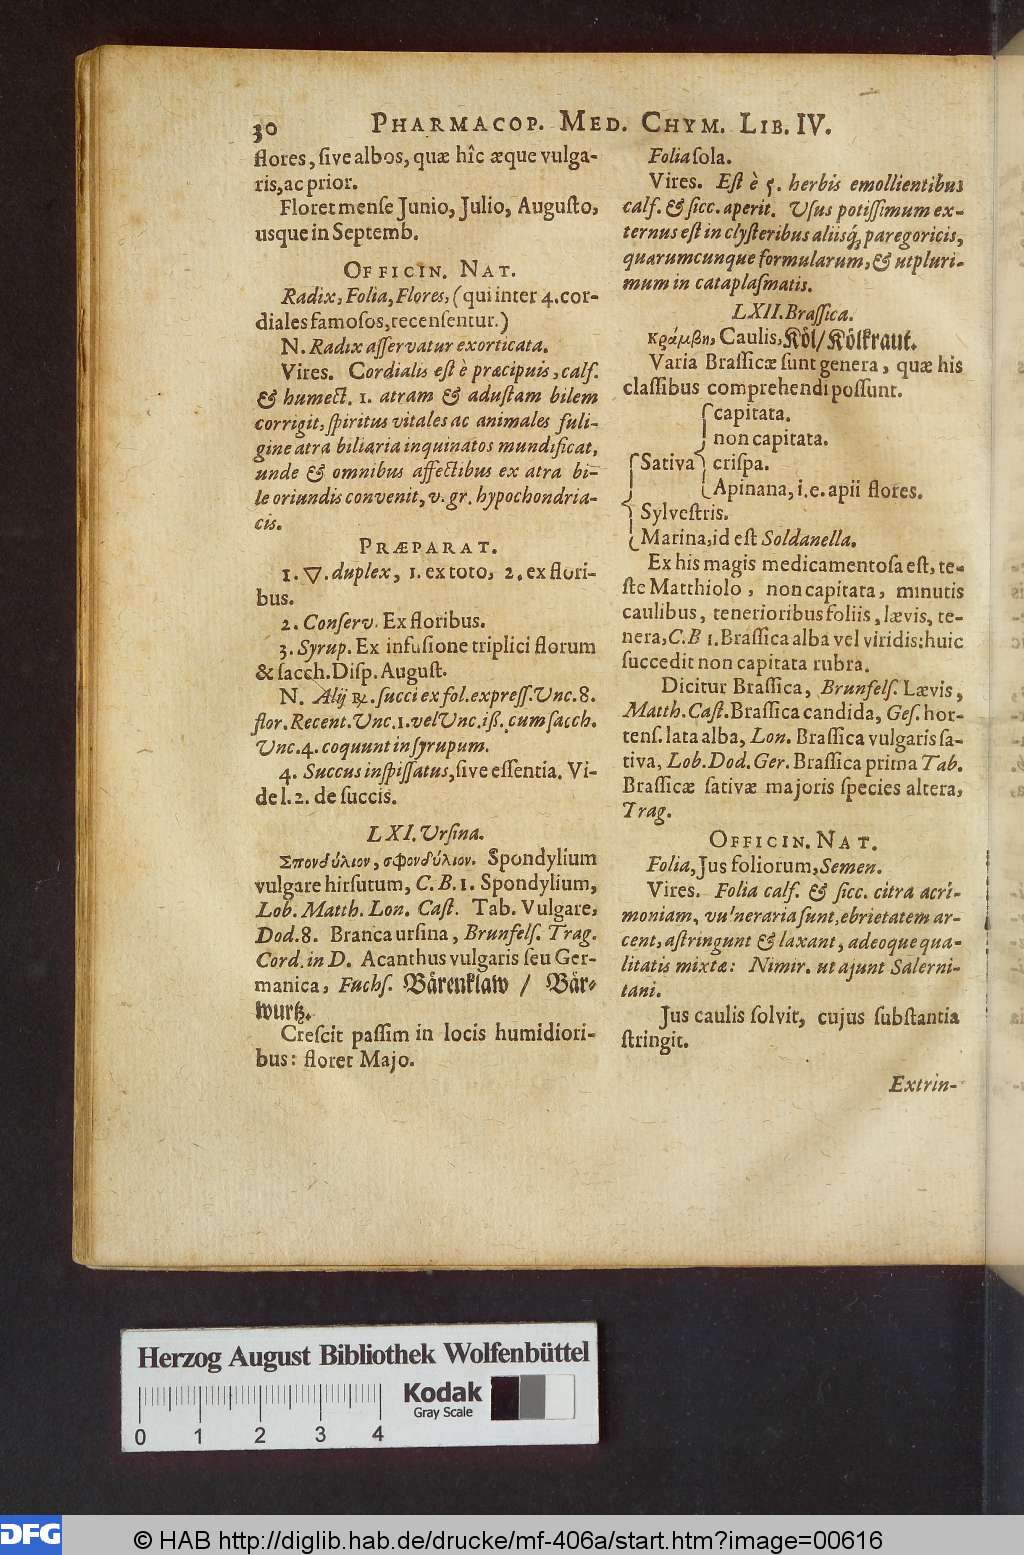 30 PHARMACOP. MED. CHYM. LIB. IV.
flores, ſive albos, quæ hîc æque vulga-
ris, ac prior.
Floret menſe Junio, Julio, Auguſto,
usque in Septemb.
OFFICIN. NAT.
Radix, Folia, Flores, (qui inter 4. cor-
diales famoſos, recenſentur.)
N. Radix aſſervatur exorticata.
Vires. Cordialis eſt è præcipuis, calf.
& humect. 1. atram & aduſtam bilem
corrigit, ſpiritus vitales ac animales fuli-
gine atra biliaria inquinatos mundificat,
unde & omnibus affectibus ex atra bi-
le oriundis convenit, v. gr. hypochondria-
cis.
PRÆPARAT.
1. ▽. duplex, 1. ex toto, 2. ex flori-
bus.
2. Conſerv. Ex floribus.
3. Syrup. Ex infuſione triplici florum
& ſacch. Diſp. Auguſt.
N. Alij ℞. ſucci ex fol. expreſſ. Unc. 8.
flor. Recent. Unc. 1. vel Unc. iß. cum ſacch.
Unc. 4. coquunt in ſyrupum.
4. Succus inſpiſſatus, ſive eſſentia. Vi-
de l. 2. de ſuccis.
LXI. Urſina.
Σπονδύλιον, σφονδύλιον. Spondylium
vulgare hirſutum, C. B. 1. Spondylium,
Lob. Matth. Lon. Caſt. Tab. Vulgare,
Dod. 8. Branca urſina, Brunfelſ. Trag.
Cord. in D. Acanthus vulgaris ſeu Ger-
manica, Fuchſ. Bårenklaw / Bår-
wurtz.
Creſcit paſſim in locis humidiori-
bus: floret Majo.
Folia ſola.
Vires. Eſt è 5. herbis emollientibus
calf. & ſicc. aperit. Uſus potiſſimum ex-
ternus eſt in clyſteribus aliisq́; paregoricis,
quarumcunque formularum, & ut pluri-
mum in cataplaſmatis.
LXII. Braſſica.
κράμβη, Caulis, Kôl / Kôlkraut.
Varia Braſſicæ ſunt genera, quæ his
claſſibus comprehendi poſſunt.
capitata.
non capitata.
Sativa criſpa.
Apinana, i. e. apii flores.
Sylveſtris.
Marina, id eſt Soldanella.
Ex his magis medicamentoſa eſt, te-
ſte Matthiolo, non capitata, minutis
caulibus, tenerioribus foliis, lævis, te-
nera, C. B 1. Braſſica alba vel viridis: huic
ſuccedit non capitata rubra.
Dicitur Braſſica, Brunfelſ. Lævis,
Matth. Caſt. Braſſica candida, Geſ. hor-
tenſ. lata alba, Lon. Braſſica vulgaris ſa-
tiva, Lob. Dod. Ger. Braſſica prima Tab.
Braſſicæ ſativæ majoris ſpecies altera,
Trag.
OFFICIN. NAT.
Folia, Jus foliorum, Semen.
Vires. Folia calf. & ſicc. citra acri-
moniam, vulneraria ſunt, ebrietatem ar-
cent, aſtringunt & laxant, adeoque qua-
litatis mixtæ: Nimir. ut ajunt Salerni-
tani.
Jus caulis ſolvit, cujus ſubſtantia
ſtringit.
Extrin-
Herzog August Bibliothek Wolfenbüttel
Kodak
Gray Scale
0 1 2 3 4
DFG
© HAB http://diglib.hab.de/drucke/mf-406a/start.htm?image=00616